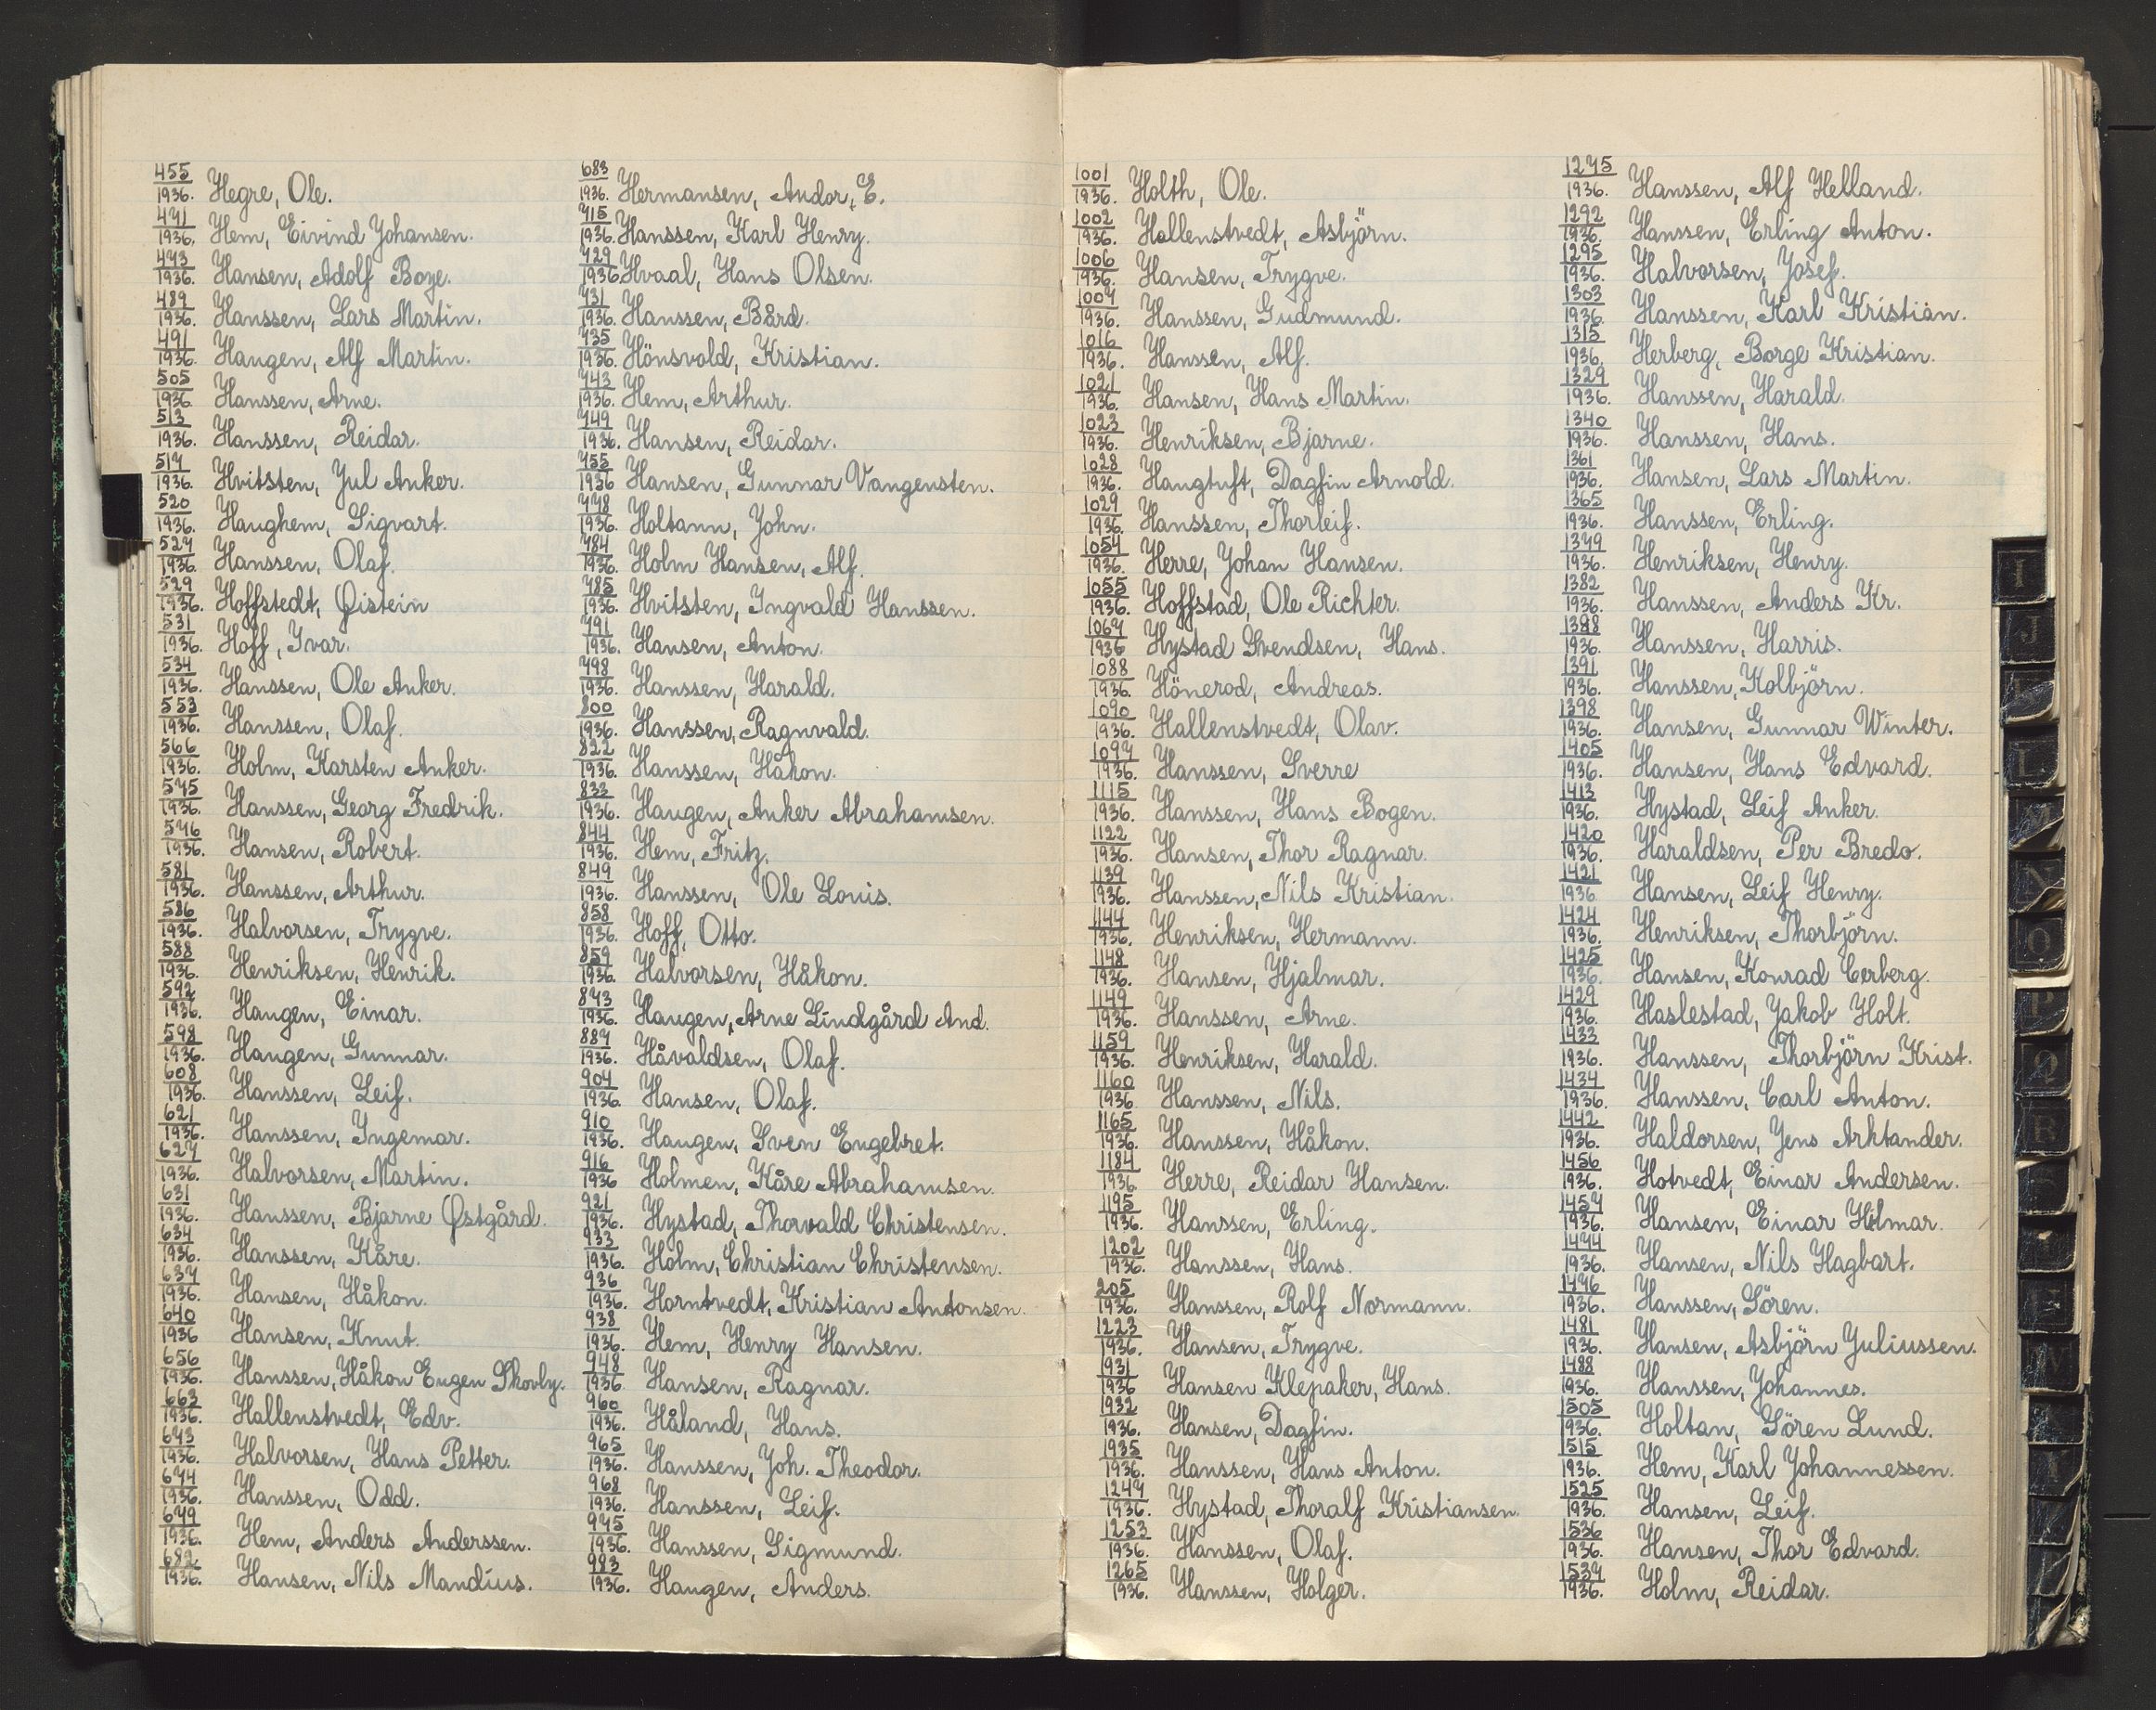 455
1936. Hegre, Ole.
471
1936. Hem, Eivind Johansen.
473
1936. Hansen, Adolf Boye.
489
1936. Hanssen, Lars Martin.
491
1936. Haugen, Alf Martin.
505
1936. Hanssen, Arne.
513
1936. Hanssen, Reidar.
517
1936. Hvitsten, Jul Anker.
520
1936. Haughem, Sigvart.
527
1936. Hanssen, Olaf.
529
1936. Hoffstedt, Øistein
531
1936. Hoff, Ivar.
534
1936. Hanssen, Ole Anker.
553
1936. Hanssen, Olaf.
566
1936. Holm, Karsten Anker.
575
1936. Hanssen, Georg Fredrik.
576
1936. Hansen, Robert.
581
1936. Hanssen, Arthur.
586
1936. Halvorsen, Trygve.
588
1936. Henriksen, Henrik.
592
1936. Haugen, Einar.
598
1936. Haugen, Gunnar.
608
1936. Hanssen, Leif.
621
1936. Hanssen, Ingemar.
627
1936. Halvorsen, Martin.
631
1936. Hanssen, Bjarne Østgård.
634
1936. Hanssen, Kåre.
637
1936. Hansen, Håkon.
640
1936 Hansen, Knut.
656
1936. Hanssen, Håkon Eugen Skovly.
663
1936. Hallenstvedt, Edv.
673
1936. Halvorsen, Hans Petter.
674
1936. Hanssen, Odd.
679
1936. Hem, Anders Anderssen.
682
1936. Hansen, Nils Mandius.
683
1936. Hermansen, Andor, E.
715
1936. Hanssen, Karl Henry.
729
1936 Hvaal, Hans Olsen.
731
1936. Hanssen, Bård.
735
1936. Hönsvald, Kristian.
743
1936. Hem, Arthur.
749
1936. Hansen, Reidar.
755
1936 Hansen, Gunnar Vangensten.
778
1936. Holtann, John.
784
1936. Holm Hansen, Alf.
785
1936. Hvitsten, Ingvald Hanssen.
791
1936. Hansen, Anton.
798
1936. Hanssen, Harald.
800
1936. Hanssen, Ragnvald.
822
1936. Hanssen, Håkon.
833
1936. Haugen, Anker Abrahamsen.
844
1936. Hem, Fritz.
849
1936. Hanssen, Ole Louis.
858
1936. Hoff, Otto.
859
1936. Halvorsen, Håkon.
873
1936. Haugen, Arne Lindgård And.
887
1936. Håvaldsen, Olaf.
904
1936. Hansen, Olaf.
910
1936. Haugen, Sven Engebret.
916
1936 Holmen, Kåre Abrahamsen.
921
1936. Hystad, Thorvald Christensen.
933
1936. Holm, Christian Christensen.
936
1936. Horntvedt, Kristian Antonsen.
938
1936. Hem, Henry Hansen.
948
1936 Hansen, Ragnar.
960
1936. Håland, Hans.
965
1936. Hanssen, Joh. Theodor.
968
1936. Hanssen, Leif.
975
1936. Hanssen, Sigmund.
983
1936. Haugen, Anders.
1001
1936. Holth, Ole.
1002
1936. Hallenstvedt, Asbjörn.
1006
1936. Hansen, Trygve.
1007
1936. Hanssen, Gudmund.
1016
1936. Hanssen, Alf.
1021
1936. Hansen, Hans Martin.
1023
1936. Henriksen, Bjarne.
1028
1936. Haugtuft, Dagfin Arnold.
1029
1936. Hanssen, Thorleif.
1054
1936. Herre, Johan Hansen.
1055
1936. Hoffstad, Ole Richter.
1067
1936 Hystad Svendsen, Hans.
1088
1936. Hönerød, Andreas.
1090
1936. Hallenstvedt, Olav.
1097
1936. Hanssen, Sverre
1115
1936. Hanssen, Hans Bogen.
1122
1936. Hansen, Thor Ragnar.
1139
1936. Hanssen, Nils Kristian.
1144
1936. Henriksen, Hermann.
1148
1936. Hansen, Hjalmar.
1149
1936. Hanssen, Arne.
1159
1936. Henriksen, Harald.
1160
1936 Hanssen, Nils.
1165
1936. Hanssen, Håkon.
1184
1936. Herre, Reidar Hansen.
1195
1936. Hanssen, Erling.
1202
1936. Hanssen, Hans.
205
1936. Hanssen, Rolf Normann.
1223
1936. Hansen, Trygve.
1931
1936 Hansen Klepaker, Hans.
1932
1936. Hansen, Dagfin.
1935
1936. Hanssen, Hans Anton.
1247
1936. Hystad, Thoralf Kristiansen.
1253
1936. Hanssen, Olaf.
1265
1936. Hanssen, Holger.
1275
1936. Hanssen, Alf Helland.
1292
1936. Hanssen, Erling Anton.
1295
1936. Halvorsen, Josef.
1303
1936. Hanssen, Karl Kristian.
1315
1936. Herberg, Borge Kristian.
1329
1936. Hanssen, Harald.
1340
1936. Hanssen, Hans.
1361
1936. Hansen, Lars Martin.
1365
1936. Hanssen, Erling.
1379
1936. Henriksen, Henry.
1382
1936. Hanssen, Anders Kr.
1388
1936. Hanssen, Harris.
1391
1936. Hanssen, Kolbjörn.
1398
1936. Hansen, Gunnar Winter.
1405
1936. Hansen, Hans Edvard.
1413
1936. Hystad, Leif Anker.
1420
1936. Haraldsen, Per Bredo.
1421
1936 Hansen, Leif Henry.
1424
1936. Henriksen, Thorbjörn.
1425
1936. Hansen, Konrad Cerberg.
1429
1936. Haslestad, Jakob Holt.
1433
1936. Hanssen, Thorbjörn Krist.
1434
1936. Hanssen, Carl Anton.
1442
1936. Haldorsen, Jens Arktander.
1456
1936. Hotvedt, Einar Andersen.
1457
1936. Hansen, Einar Hilmar.
1474
1936. Hansen, Nils Hagbart.
1476
1936. Hanssen, Sören.
1481
1936. Hansen, Asbjörn Juliussen.
1488
1936. Hanssen, Johannes.
1505
1936. Holtan, Sören Lund.
1515
1936. Hem, Karl Johannessen.
1525
1936. Hansen, Leif.
1536
1936. Hansen, Thor Edvard.
1537
1936. Holm, Reidar.
I
J
L
N
O
P
Q
R